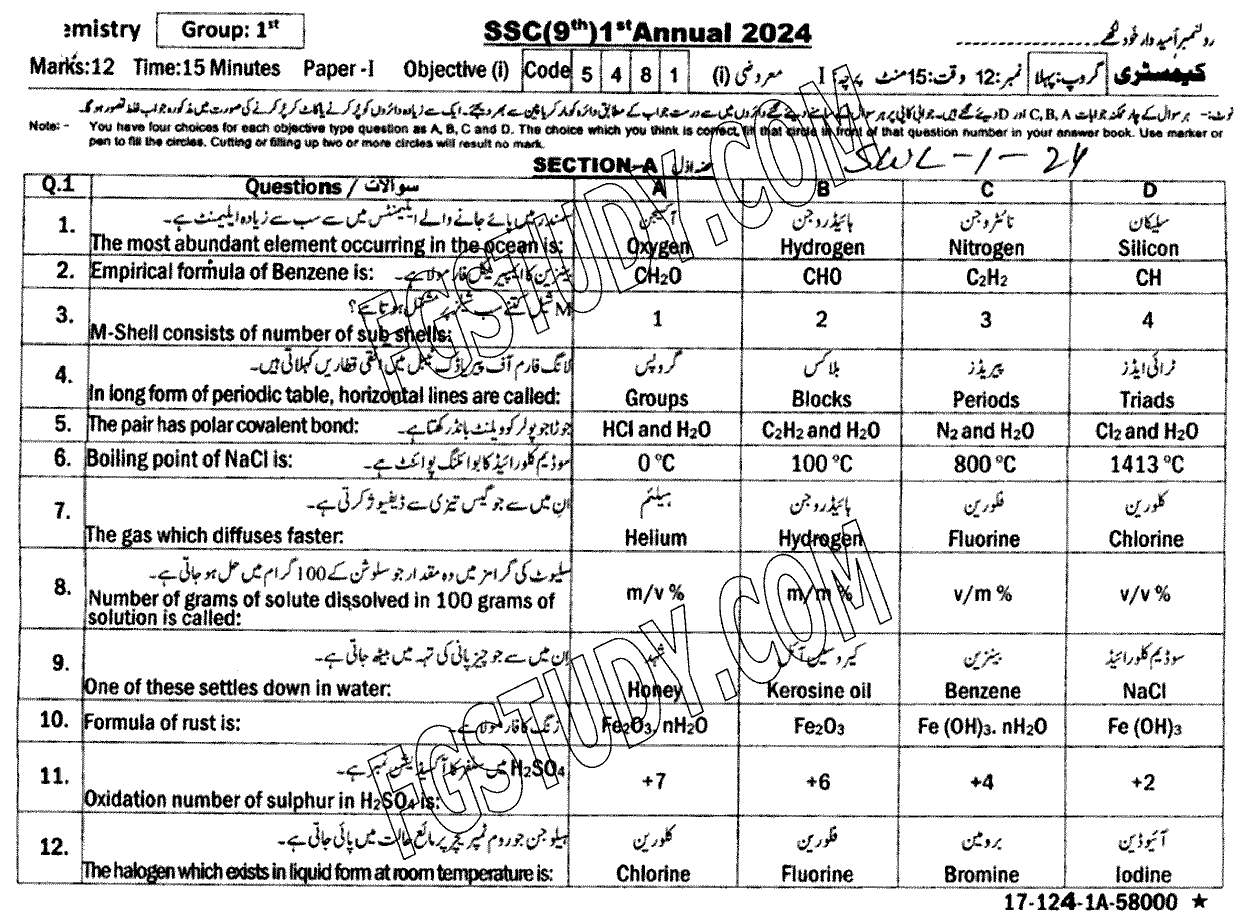 emistry Group: 1st SSC(9th)1st Annual 2024 رولنمبر اُمیدوار خُود لکھے
Marks:12 Time:15 Minutes Paper -I Objective (i) Code 5 4 8 1 معروضی (i) پرچہ: I وقت: 15 منٹ نمبر: 12 گروپ: پہلا کیمسٹری
نوٹ:- ہر سوال کے چار ممکنہ جوابات C, B, A اور D دیئے گئے ہیں۔ جوابی کاپی پر ہر سوال کے سامنے دیئے گئے دائروں میں سے درست جواب کے مطابق دائرہ کو مارکر یا پین سے بھر دیجئے۔ ایک سے زیادہ دائروں کو پُر کرنے یا کاٹ کر پُر کرنے کی صورت میں مذکورہ جواب غلط تصور ہوگا۔
Note: - You have four choices for each objective type question as A, B, C and D. The choice which you think is correct, fill that circle in front of that question number in your answer book. Use marker or
pen to fill the circles. Cutting or filling up two or more circles will result no mark.
SECTION-A حصہ اوّل SWL-1-24
Q.1 Questions / سوالات A B C D
1. سمندر میں پائے جانے والے ایلیمنٹس میں سے سب سے زیادہ ایلیمنٹ ہے۔ آکسیجن ہائیڈروجن نائٹروجن سیلیکان
The most abundant element occurring in the ocean is: Oxygen Hydrogen Nitrogen Silicon
2. Empirical formula of Benzene is: بینزین کا ایمپیریکل فارمولا ہے۔ CH₂O CHO C₂H₂ CH
3. M شیل کتنے سب شیلز پر مشتمل ہوتا ہے؟
M-Shell consists of number of sub shells: 1 2 3 4
4. لانگ فارم آف پیریاڈک ٹیبل میں اُفقی قطاریں کہلاتی ہیں۔ گروپس بلاکس پیریڈز ٹرائی ایڈز
In long form of periodic table, horizontal lines are called: Groups Blocks Periods Triads
5. The pair has polar covalent bond: جوڑا جو پولر کوویلنٹ بانڈ رکھتا ہے۔ HCl and H₂O C₂H₂ and H₂O N₂ and H₂O Cl₂ and H₂O
6. Boiling point of NaCl is: سوڈیم کلورائیڈ کا بوائلنگ پوائنٹ ہے۔ 0 °C 100 °C 800 °C 1413 °C
7. اِن میں سے جو گیس تیزی سے ڈیفیوز کرتی ہے۔ ہیلیئم ہائیڈروجن فلورین کلورین
The gas which diffuses faster: Helium Hydrogen Fluorine Chlorine
8. سلیوٹ کی گرامز میں وہ مقدار جو سلوشن کے 100 گرام میں حل ہو جاتی ہے۔ m/v % m/m % v/m % v/v %
Number of grams of solute dissolved in 100 grams of
solution is called:
9. اِن میں سے جو چیز پانی کی تہہ میں بیٹھ جاتی ہے۔ شہد کیروسین آئل بینزین سوڈیم کلورائیڈ
One of these settles down in water: Honey Kerosine oil Benzene NaCl
10. Formula of rust is: زنگ کا فارمولا ہے۔ Fe₂O₃. nH₂O Fe₂O₃ Fe (OH)₃. nH₂O Fe (OH)₃
11. H₂SO₄ میں سلفر کا آکسیڈیشن نمبر ہے۔ +7 +6 +4 +2
Oxidation number of sulphur in H₂SO₄ is:
12. ہیلوجن جو روم ٹمپریچر پر مائع حالت میں پائی جاتی ہے۔ کلورین فلورین برومین آئیوڈین
The halogen which exists in liquid form at room temperature is: Chlorine Fluorine Bromine Iodine
17-124-1A-58000 ★
FGSTUDY.COM
FGSTUDY.COM